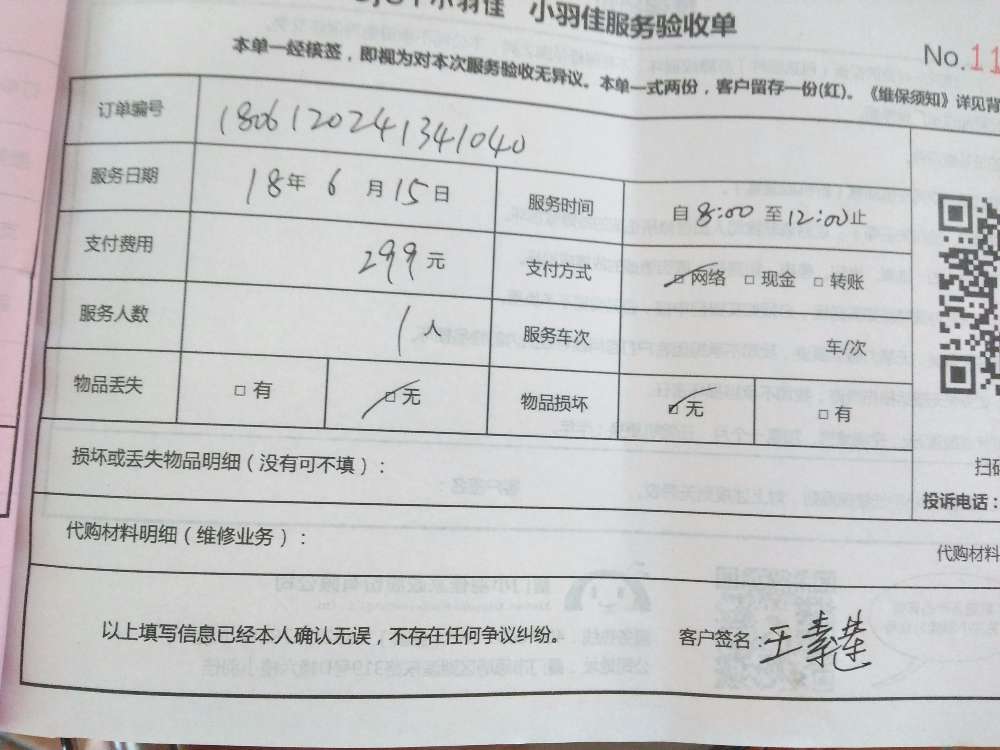 小羽佳 小羽佳服务验收单
No.11
本单一经核签，即视为对本次服务验收无异议。本单一式两份，客户留存一份(红)。《维保须知》详见背
订单编号 1806120241341040
服务日期 18年 6 月 15 日 服务时间 自 8:00 至 12:00 止
支付费用 299 元 支付方式 □ 网络 □ 现金 □ 转账
服务人数 1 人 服务车次 车/次
物品丢失 □ 有 □ 无 物品损坏 □ 无 □ 有
损坏或丢失物品明细（没有可不填）：
扫码
投诉电话：
代购材料明细（维修业务）：
代购材料
以上填写信息已经本人确认无误，不存在任何争议纠纷。 客户签名：王素莲